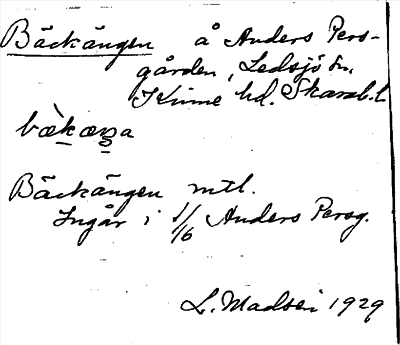 Bäckängen å Anders Pers-
gården, Ledsjö sn.
Kinne hd. Skarab. l.
bæ̀kæŋa
Bäckängen mtl.
Ingår i 1/16 Anders Persg.
L. Madsen 1929